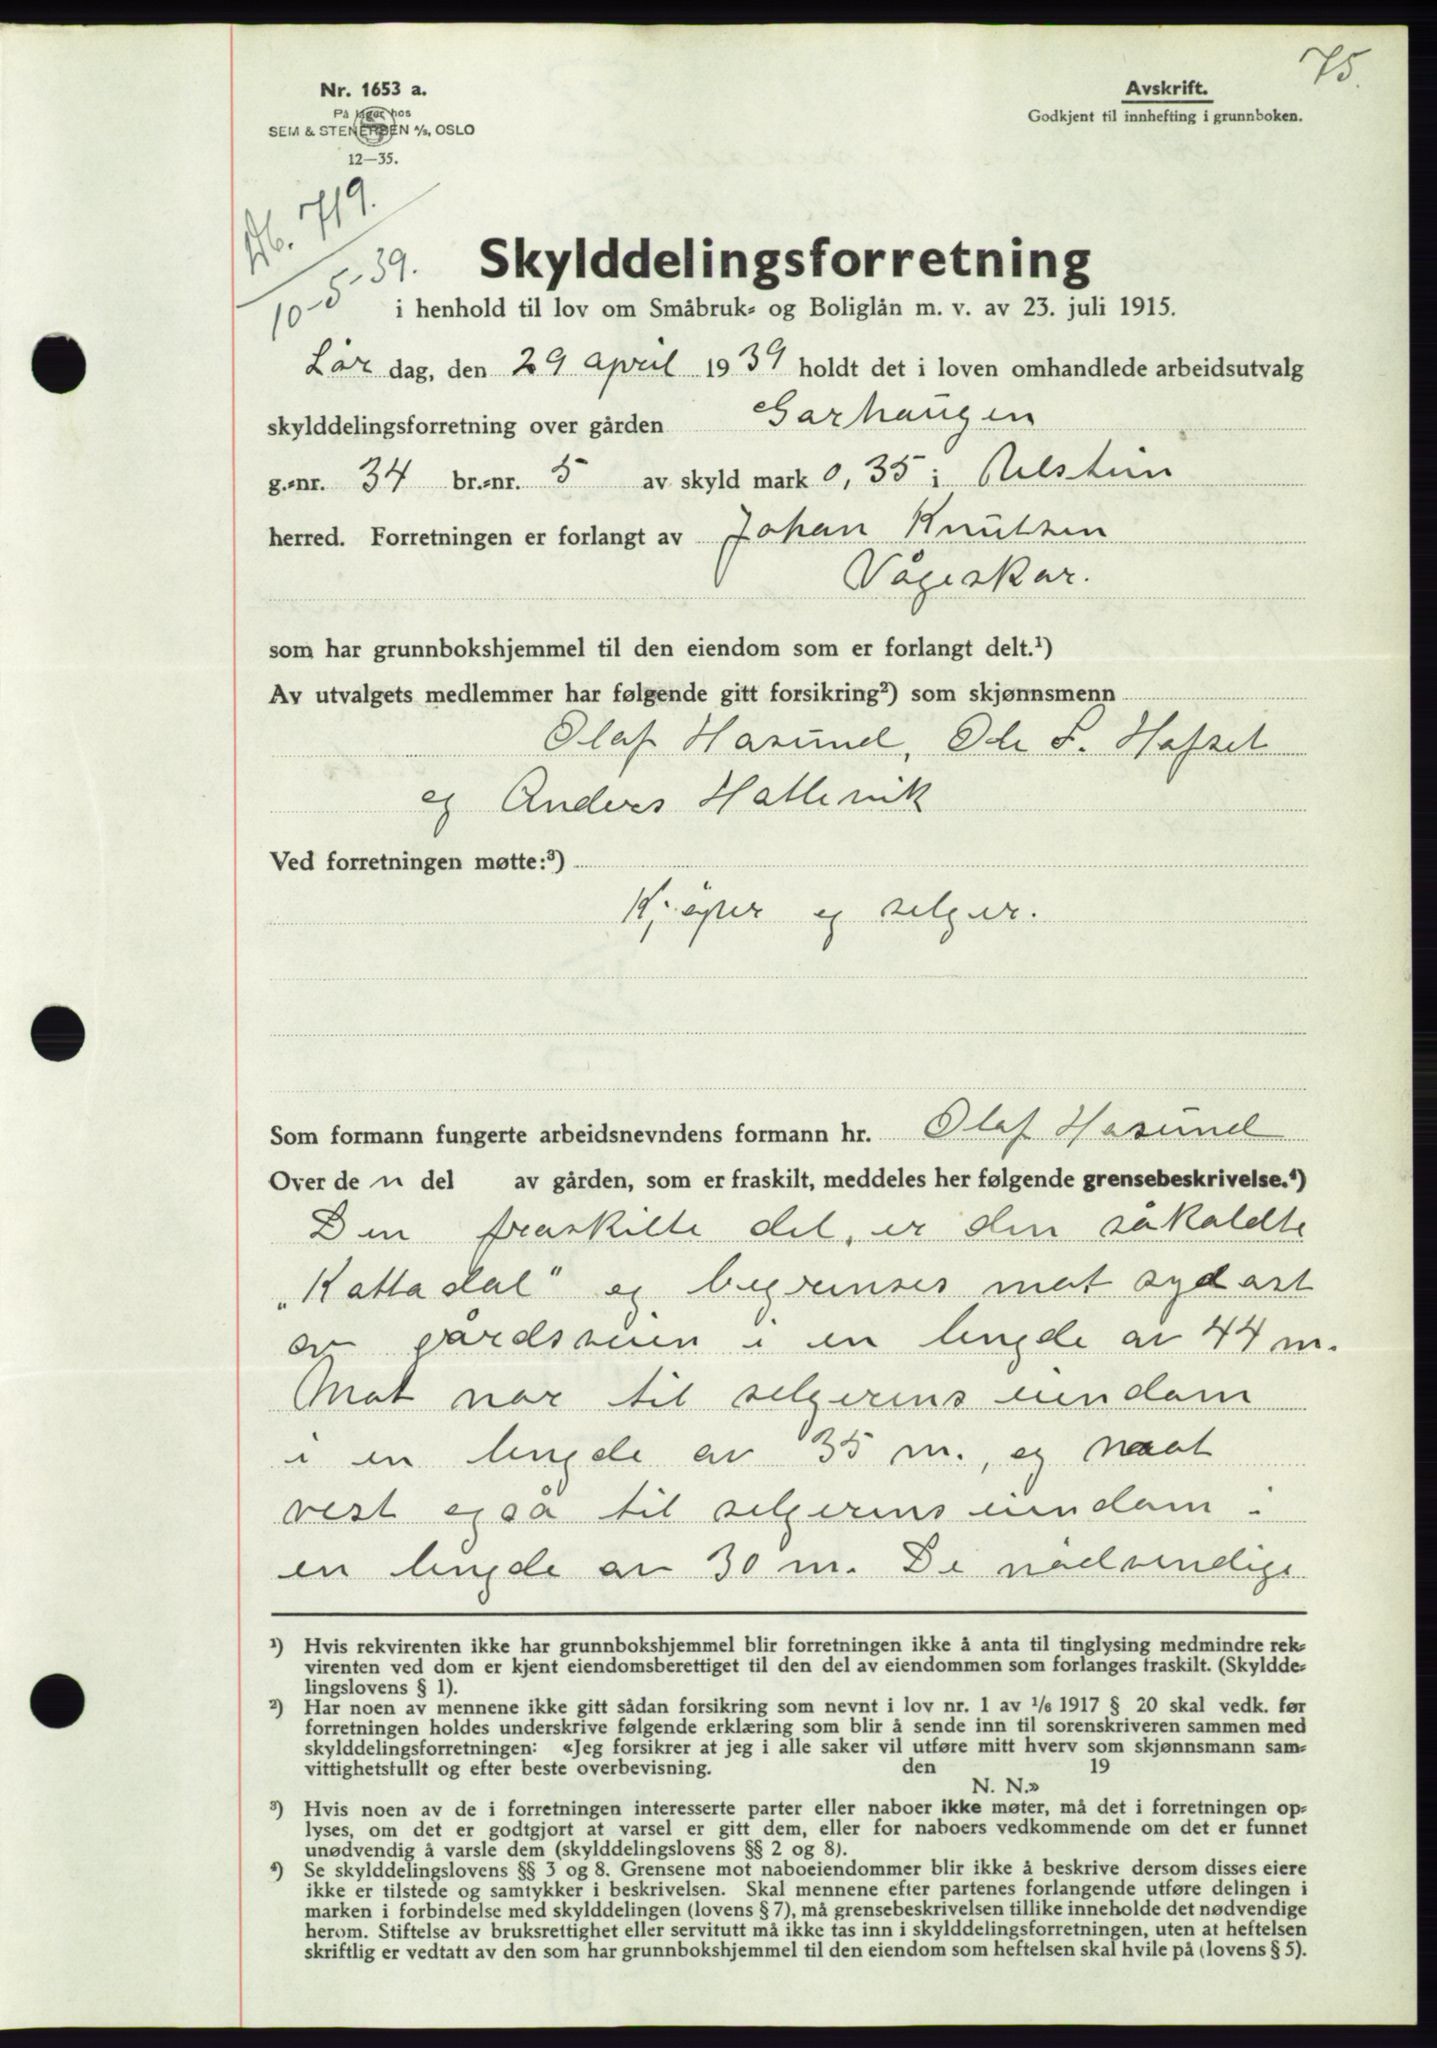 75.
Nr. 1653 a.
På lager hos
SEM & STENERSEN A/S, OSLO
12—35.
Avskrift.
Godkjent til innhefting i grunnboken.
Db. 719.
10-5-39.
Skylddelingsforretning
i henhold til lov om Småbruk- og Boliglån m. v. av 23. juli 1915.
Lør dag, den 29 april 1939 holdt det i loven omhandlede arbeidsutvalg
skylddelingsforretning over gården Garhaugen
g.-nr. 34 br.-nr. 5 av skyld mark 0,35 i Ulstein
herred. Forretningen er forlangt av Johan Knutsen
Vågeskar.
som har grunnbokshjemmel til den eiendom som er forlangt delt.¹)
Av utvalgets medlemmer har følgende gitt forsikring²) som skjønnsmenn
Olaf Hasund, Ole S. Hafset
og Anders Hatlevik
Ved forretningen møtte:³)
Kjøper og selger.
Som formann fungerte arbeidsnevndens formann hr. Olaf Hasund
Over de n del av gården, som er fraskilt, meddeles her følgende grensebeskrivelse.⁴)
Den fraskilte del, er den såkaldte
„Kattadal" og begrenses mot sydost
av gårdsveien i en lengde av 44 m.
Mot nor til selgerens eiendom
i en lengde av 35 m., og mot
vest også til selgerens eiendom i
en lengde av 30 m. De nødvendige
¹) Hvis rekvirenten ikke har grunnbokshjemmel blir forretningen ikke å anta til tinglysing medmindre rek-
virenten ved dom er kjent eiendomsberettiget til den del av eiendommen som forlanges fraskilt. (Skyldde-
lingslovens § 1).
²) Har noen av mennene ikke gitt sådan forsikring som nevnt i lov nr. 1 av 1/6 1917 § 20 skal vedk. før
forretningen holdes underskrive følgende erklæring som blir å sende inn til sorenskriveren sammen med
skylddelingsforretningen: «Jeg forsikrer at jeg i alle saker vil utføre mitt hverv som skjønnsmann sam-
vittighetsfullt og efter beste overbevisning. den 19
N. N.»
³) Hvis noen av de i forretningen interesserte parter eller naboer ikke møter, må det i forretningen op-
lyses, om det er godtgjort at varsel er gitt dem, eller for naboers vedkommende om det er funnet
unødvendig å varsle dem (skylddelingslovens §§ 2 og 8).
⁴) Se skylddelingslovens §§ 3 og 8. Grensene mot naboeiendommer blir ikke å beskrive dersom disses eiere
ikke er tilstede og samtykker i beskrivelsen. Skal mennene efter partenes forlangende utføre delingen i
marken i forbindelse med skylddelingen (lovens § 7), må grensebeskrivelsen tillike inneholde det nødvendige
herom. Stiftelse av bruksrettighet eller servitutt må ikke tas inn i skylddelingsforretningen, uten at heftelsen
skriftlig er vedtatt av den som har grunnbokshjemmel til den eiendom som heftelsen skal hvile på (lovens § 5).